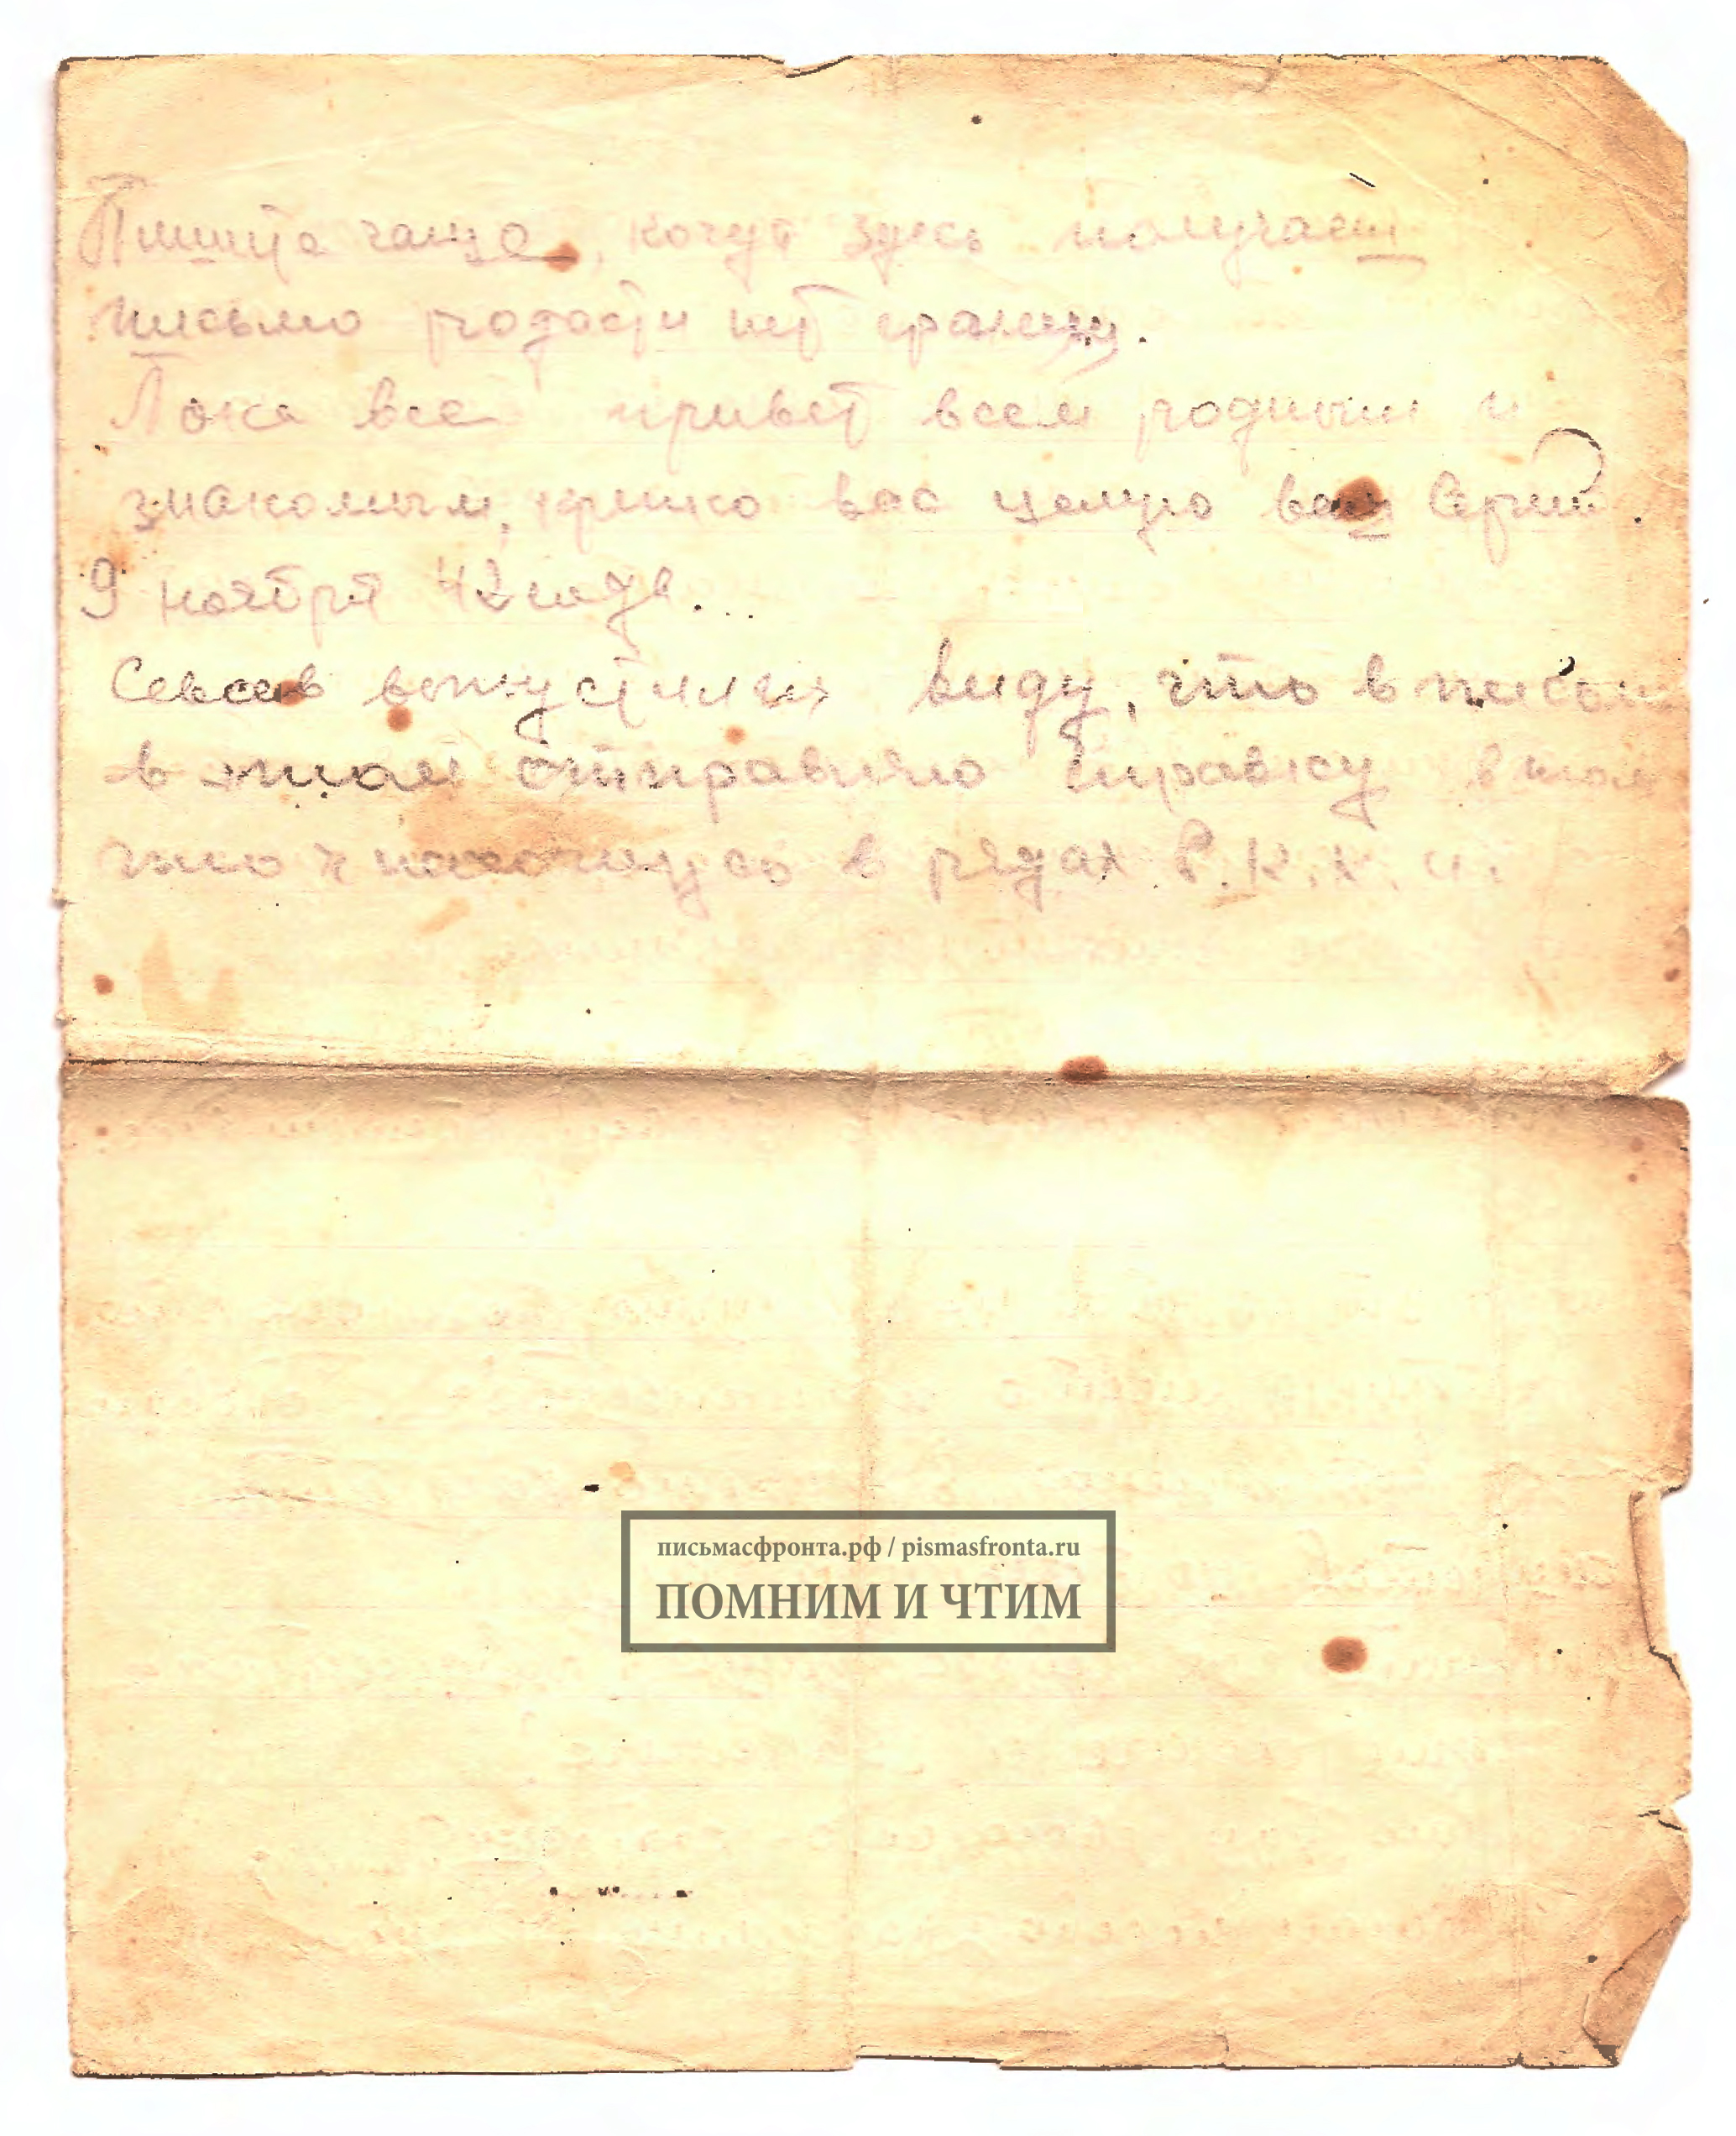 Пишите чаще, когда здесь получаеш
письмо радости нет границ.
Пока все привет всем родным и
знакомым, крепко вас целую ваш Сергей.
9 ноября 42 года...
виду, что в письм
в этом отправляю справку в том
что я нахожусь в рядах Р.К.К.А.
письмасфронта.рф / pismasfronta.ru
ПОМНИМ И ЧТИМ